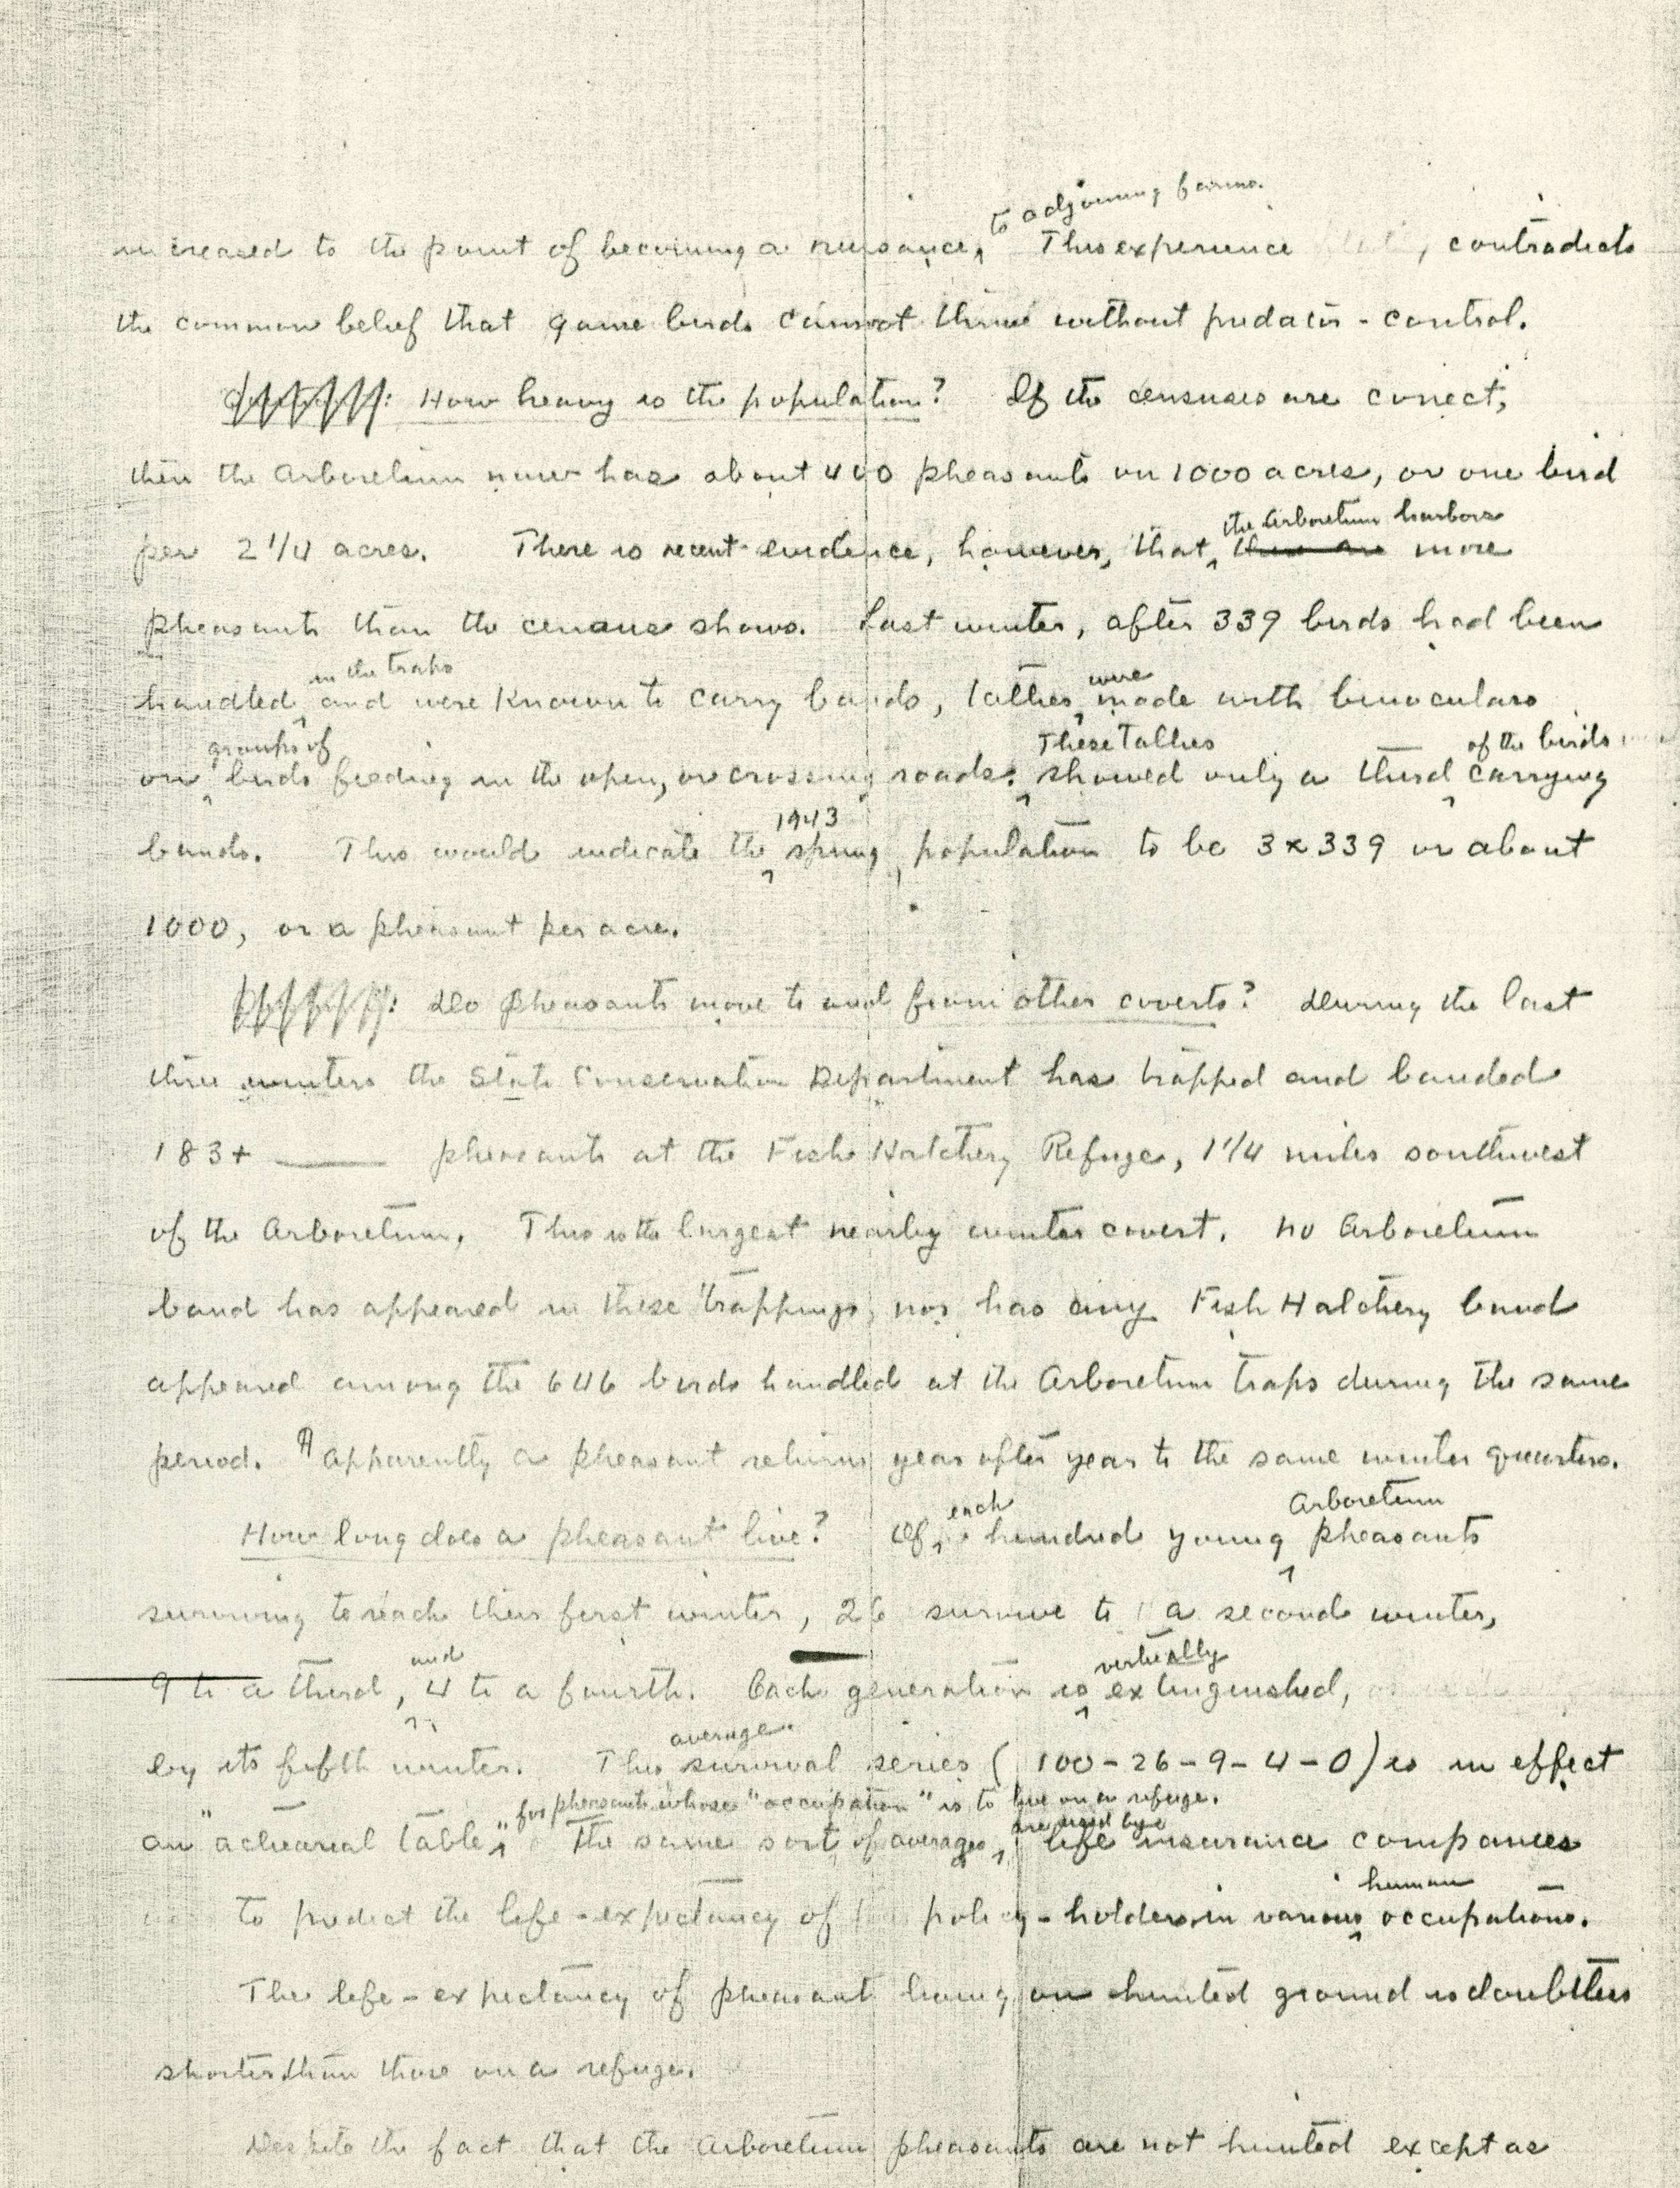 to adjoining farms.
increased to the point of becoming a nuisance, This experience , contradicts
the common belief that game birds cannot thrive without predator-control.
How heavy is the population? If the censuses are correct,
then the Arboretum now has about 400 pheasants on 1000 acres, or one bird
the Arboretum harbors
per 2 1/4 acres. There is recent evidence, however, that there are more
pheasants than the census shows. Last winter, after 339 birds had been
in the traps were
handled and were known to carry bands, tallies made with binoculars
groups of These tallies of the birds
on birds feeding in the open, or crossing roads. showed only a third carrying
1943
bands. This would indicate the spring population to be 3x339 or about
1000, or a pheasant per acre.
Do pheasants move to and from other coverts? During the last
three winters the State Conservation Department has trapped and banded
183+ ____ pheasants at the Fish Hatchery Refuge, 1 1/4 miles southwest
of the Arboretum. This is the largest nearby winter covert. No Arboretum
band has appeared in these trappings, nor has any Fish Hatchery band
appeared among the 646 birds handled at the Arboretum traps during the same
period. ¶ Apparently a pheasant returns year after year to the same winter quarters.
each Arboretum
How long does a pheasant live? Of hundred young pheasants
surviving to reach their first winter, 26 survive to a second winter,
and virtually
9 to a third, 4 to a fourth. Each generation is extinguished,
average
by its fifth winter. This survival series (100-26-9-4-0) is in effect
for pheasants whose "occupation" is to live on a refuge.
are used by
an "actuarial table" The same sort of averages life insurance companies
human
to predict the life-expectancy of policy-holders in various occupations.
The life-expectancy of pheasant living on hunted ground is doubtless
shorter than those on a refuge.
Despite the fact that the Arboretum pheasants are not hunted except as